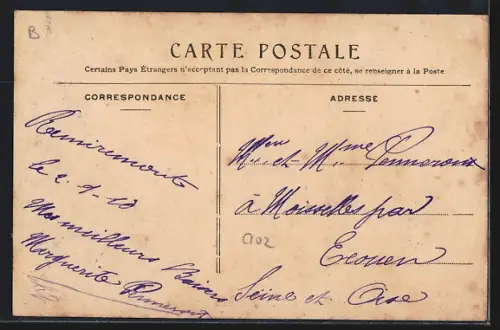 B
CARTE POSTALE
Certains Pays Étrangers n'acceptant pas la Correspondance de ce côté, se renseigner à la Poste
CORRESPONDANCE
Remiremont
le 2-1-10
Mes meilleurs Baisers
Marguerite
ADRESSE
et Mme
à Moisselles par
Ecouen
Seine et Oise